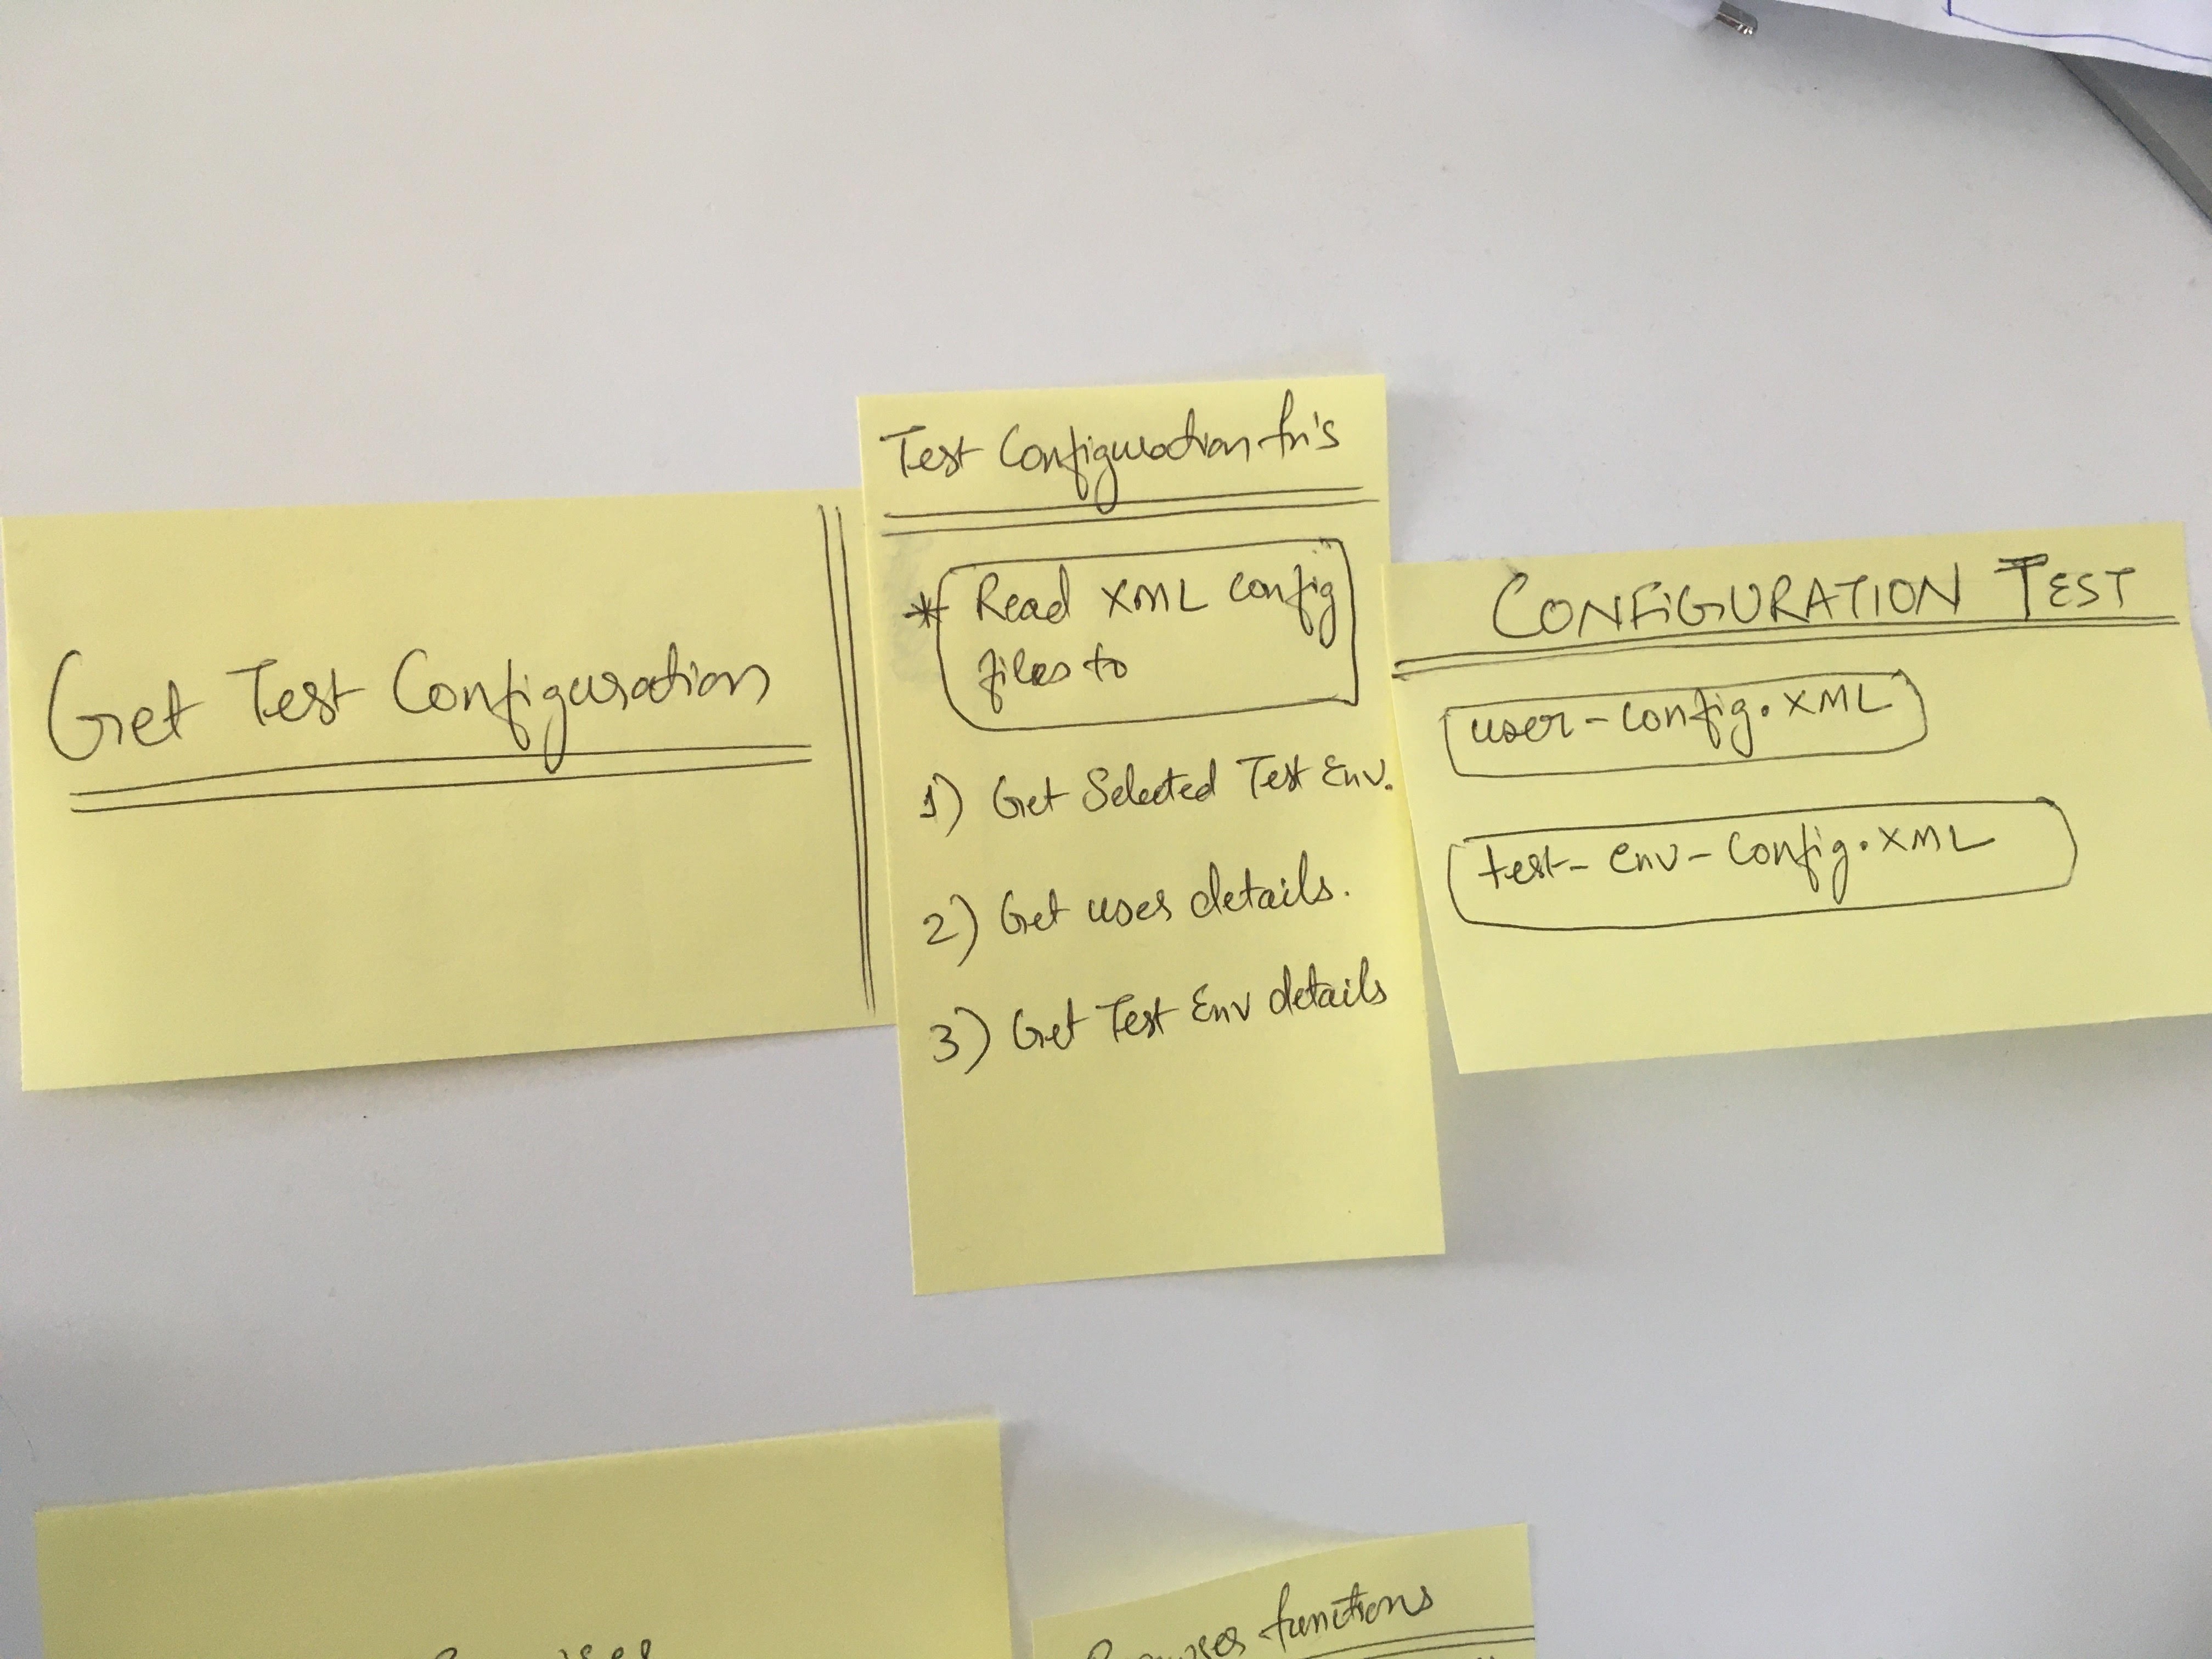 Get Test Configuration
Test Configuration fn's
* Read XML config
files to
1) Get Selected Test Env.
2) Get user details.
3) Get Test Env details
CONFIGURATION TEST
user-config.XML
test-env-config.XML
Browser functions